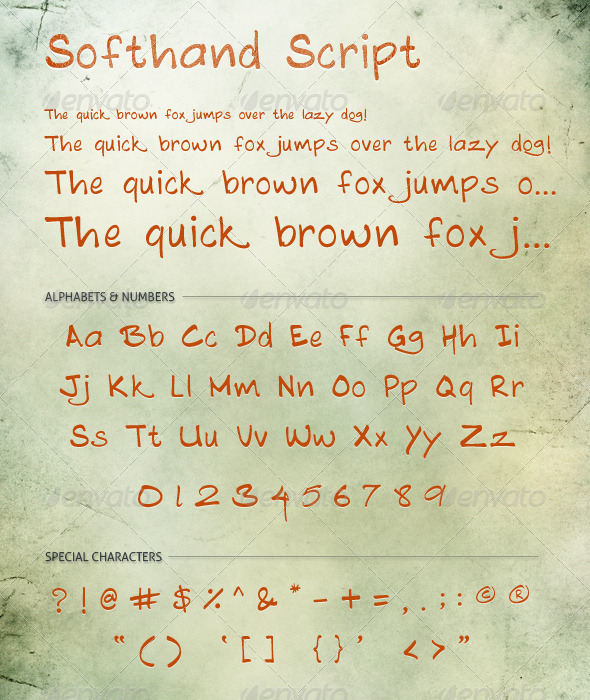 Softhand Script
The quick brown fox jumps over the lazy dog!
The quick brown fox jumps over the lazy dog!
The quick brown fox jumps o...
The quick brown fox j...
ALPHABETS & NUMBERS
Aa Bb Cc Dd Ee Ff Gg Hh Ii
Jj Kk Ll Mm Nn Oo Pp Qq Rr
Ss Tt Uu Vv Ww Xx Yy Zz
0 1 2 3 4 5 6 7 8 9
SPECIAL CHARACTERS
? ! @ # $ % ^ & * - + = , . ; : © ®
“ ( ) ‘ [ ] { } ’ < > ”
envato